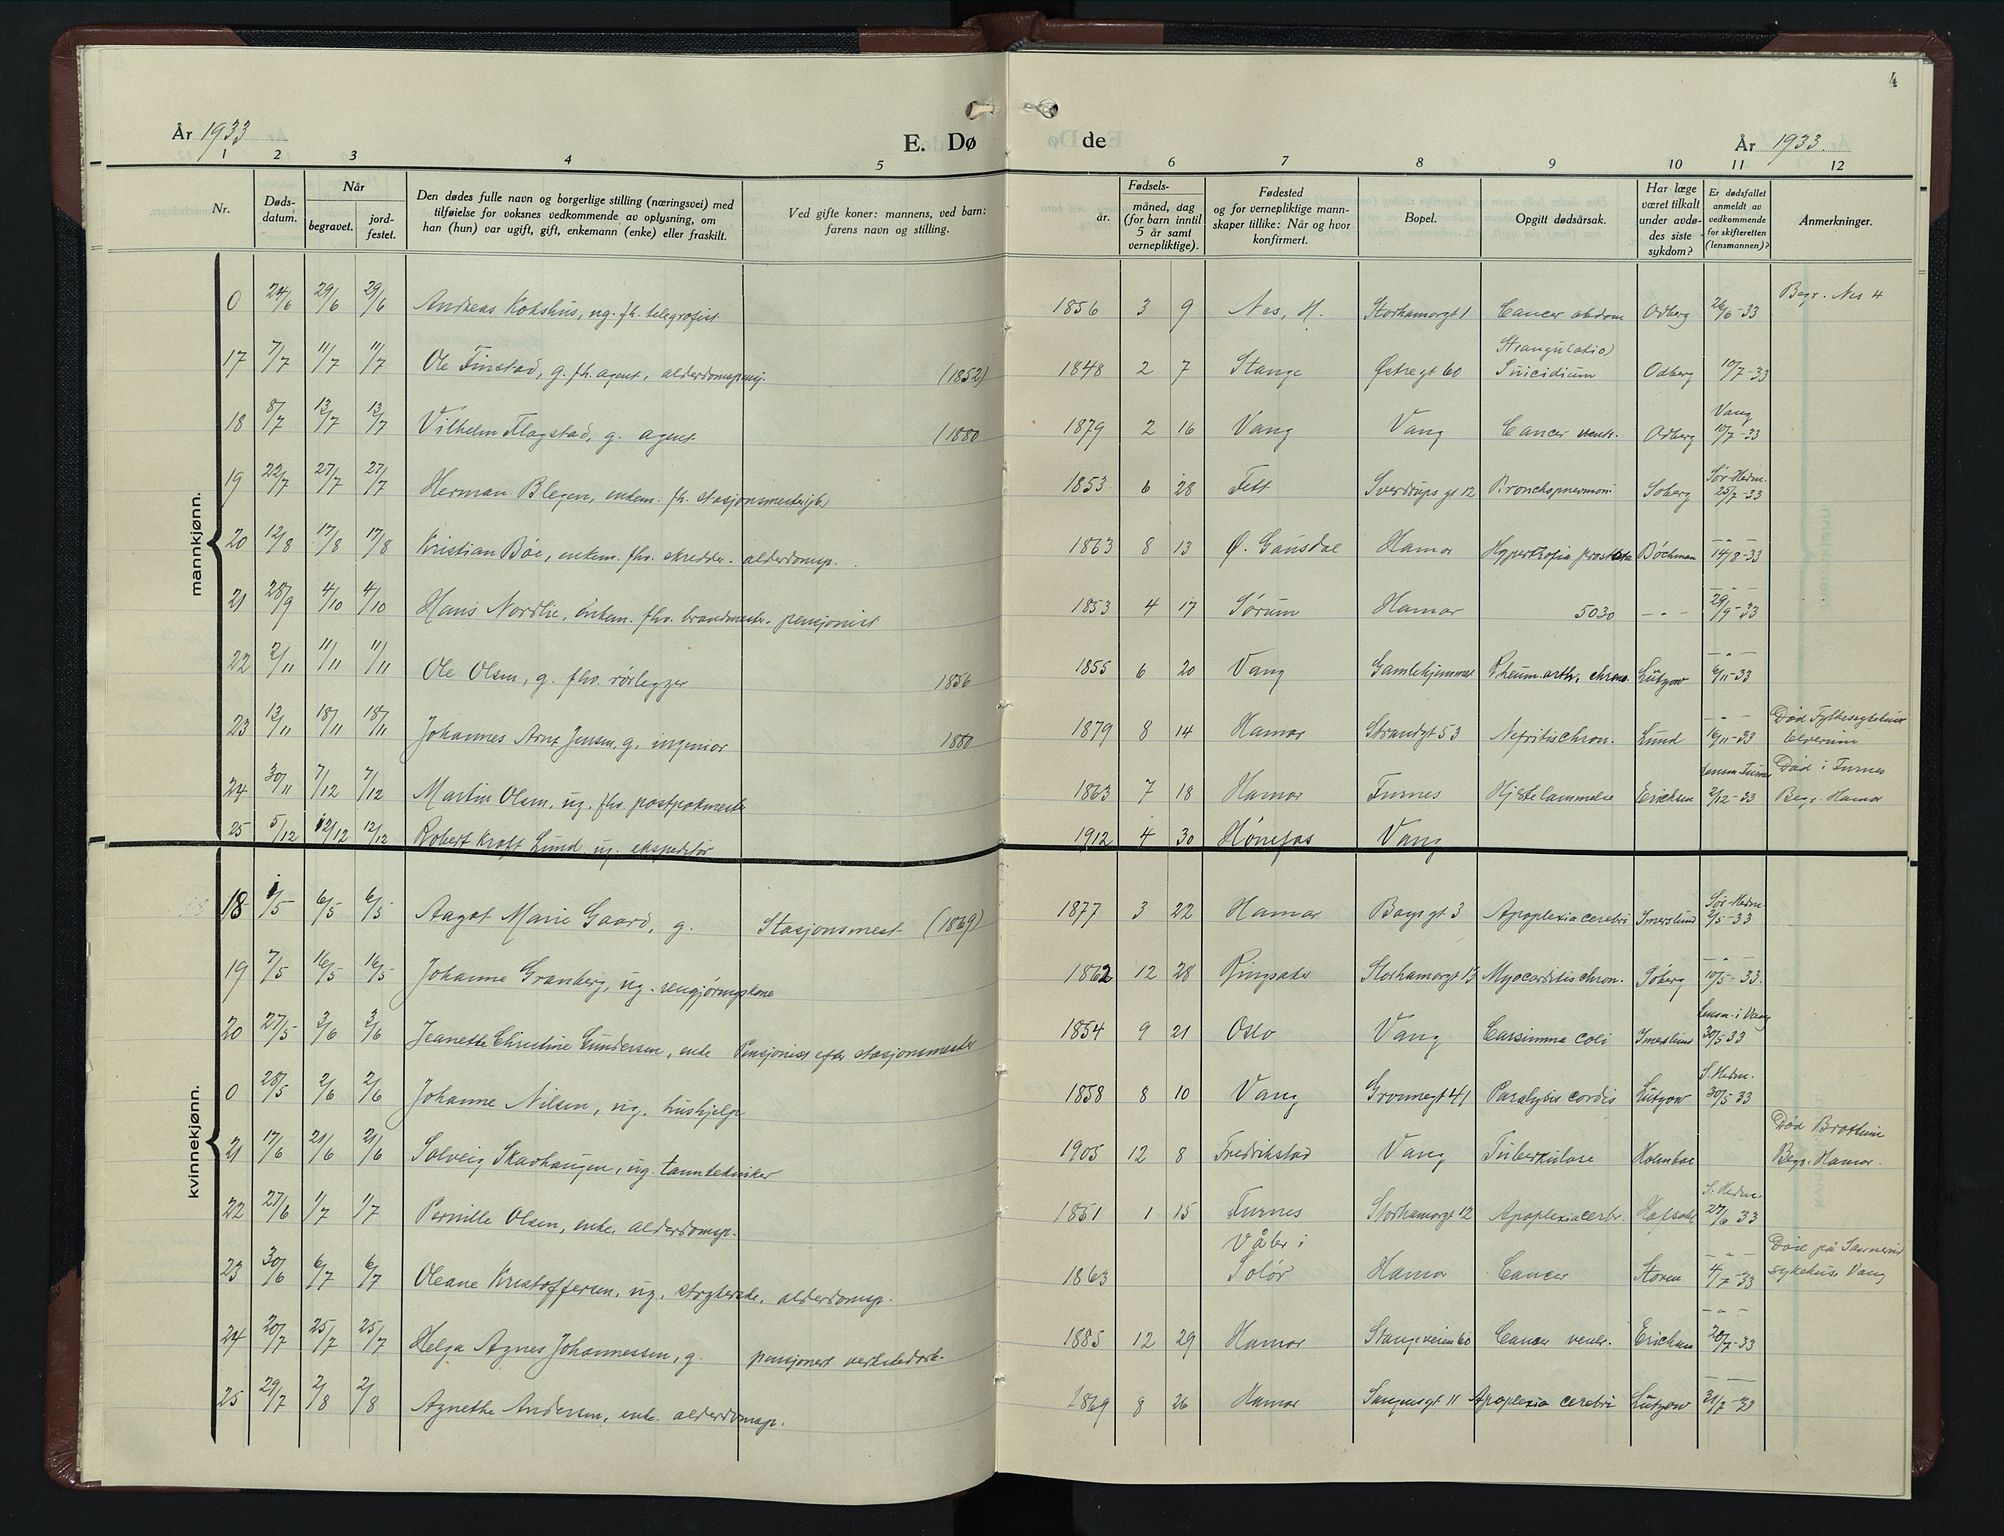 4
År 1933
E. Dø
de
År 1933.
1 2 3 4 5
6 7 8 9 10 11 12
Nr.
Døds-
datum.
Når
begravet.
jord-
festet.
Den dødes fulle navn og borgerlige stilling (næringsvei) med
tilføielse for voksnes vedkommende av oplysning, om
han (hun) var ugift, gift, enkemann (enke) eller fraskilt.
Ved gifte koner: mannens, ved barn:
farens navn og stilling.
år.
Fødsels-
måned, dag
(for barn inntil
5 år samt
vernepliktige).
Fødested
og for vernepliktige mann-
skaper tillike: Når og hvor
konfirmert.
Bopel.
Opgitt dødsårsak.
Har læge
været tilkalt
under avdø-
des siste
sykdom?
Er dødsfallet
anmeldt av
vedkommende
for skifteretten
(lensmannen)?
Anmerkninger.
mannkjønn.
0 24/6 29/6 29/6 Andreas Kokshus, ug. fh. telegrafist 1856 3 9 Nes, H. Storhamargt 1 Cancer abdom Odberg 26/6-33 Begr. Nes 4
Strangulatio)
17 7/7 11/7 11/7 Ole Finstad, g. fh. agent, alderdomspensj. (1852) 1848 2 7 Stange Østregt 60 Suicidium Odberg 10/7-33
Vang
18 8/7 13/7 13/7 Vilhelm Flagstad, g. agent (1880 1879 2 16 Vang Vang Cancer ventr. Odberg 10/7-33
Sør-Hedm.
19 22/7 27/7 27/7 Herman Blegen, enkem. fh. stasjonsmester 1853 6 28 Fett Sverdrups gt 12 Bronchopneumoni Soberg 25/7-33
- " -
20 12/8 17/8 17/8 Kristian Bøe, enkem. fhv. skredder. alderdomsp. 1863 8 13 Ø. Gausdal Hamar Hypertrofia prostata Bøchman 14/8-33
- " -
21 28/9 4/10 4/10 Hans Nordlie, enkem. fhv. brandmester, pensjonist 1853 4 17 Sørum Hamar 5030 - " - 29/9-33
- " -
22 2/11 11/11 11/11 Ole Olsen, g. fhv. rørlegger 1856 1855 6 20 Vang Gamlehjemmet Rheum. arthr. chron. Lützow 6/11-33
- " - Død Fylkessykehuset
23 13/11 18/11 18/11 Johannes Arnt Jensen, g. ingeniør 1880 1879 8 14 Hamar Strandgt 53 Nefritis chron. Lund 16/11-33 Elverum
Lensm. Furnes Død i Furnes
24 30/11 7/12 7/12 Martin Olsen, ug. fhv. postpakmester 1863 7 18 Hamar Furnes Hjertelammelse Erichsen 2/12-33 Begr. Hamar
25 5/12 12/12 12/12 Robert Kraft Lund, ug. ekspeditør 1912 4 30 Hønefos Vang
kvinnekjønn.
Sør-Hedm.
18 1/5 6/5 6/5 Aagot Marie Gaard, g. Stasjonsmest. (1869) 1877 3 22 Hamar Bagsgt 3 Apoplexia cerebri Imerslund 2/5-33
- " -
19 7/5 16/5 16/5 Johanne Granberg, ug. rengjøringskone 1862 12 28 Ringsaker Storhamargt 13 Myocarditis chron. Soberg 10/5-33.
Lensm. i Vang
20 27/5 3/6 3/6 Jeanette Christine Gundersen, enke Pensjonist efter stasjonsmester 1854 9 21 Oslo Vang Carsinoma coli Imerslund 30/5 33
S. Hedm.
0 28/5 2/6 2/6 Johanne Nilsen, ug. hushjelp 1858 8 10 Vang Grønnegt 41 Paralysis cordis Lützow 30/5 33
Død Brottum
21 17/6 21/6 21/6 Solveig Skavhaugen, ug. tanntekniker 1905 12 8 Fredrikstad Vang Tuberkulose Holmboe Begr. Hamar.
S. Hedm.
22 27/6 1/7 1/7 Pernille Olsen, enke, alderdomsp. 1851 1 15 Furnes Storhamargt 12 Apoplexia cerbr. Hafsahl 27/6 33
Våler i - " - Død på Sanneruds
23 30/6 6/7 6/7 Oleane Kristoffersen, ug. strykerske, alderdomsp. 1863 Solør Hamar Cancer Storen 4/7-33 sykehus Vang
- " -
24 20/7 25/7 25/7 Helga Agnes Johannessen, g. pensjonert verkstedarb. 1885 12 29 Hamar Stangeveien 60 Cancer ventr. Erichsen 20/7-33
25 29/7 2/8 2/8 Agnethe Andersen, enke. alderdomsp. 1869 8 26 Hamar Sangensgt 11 Apoplexia cerebri Lützow 31/7-33